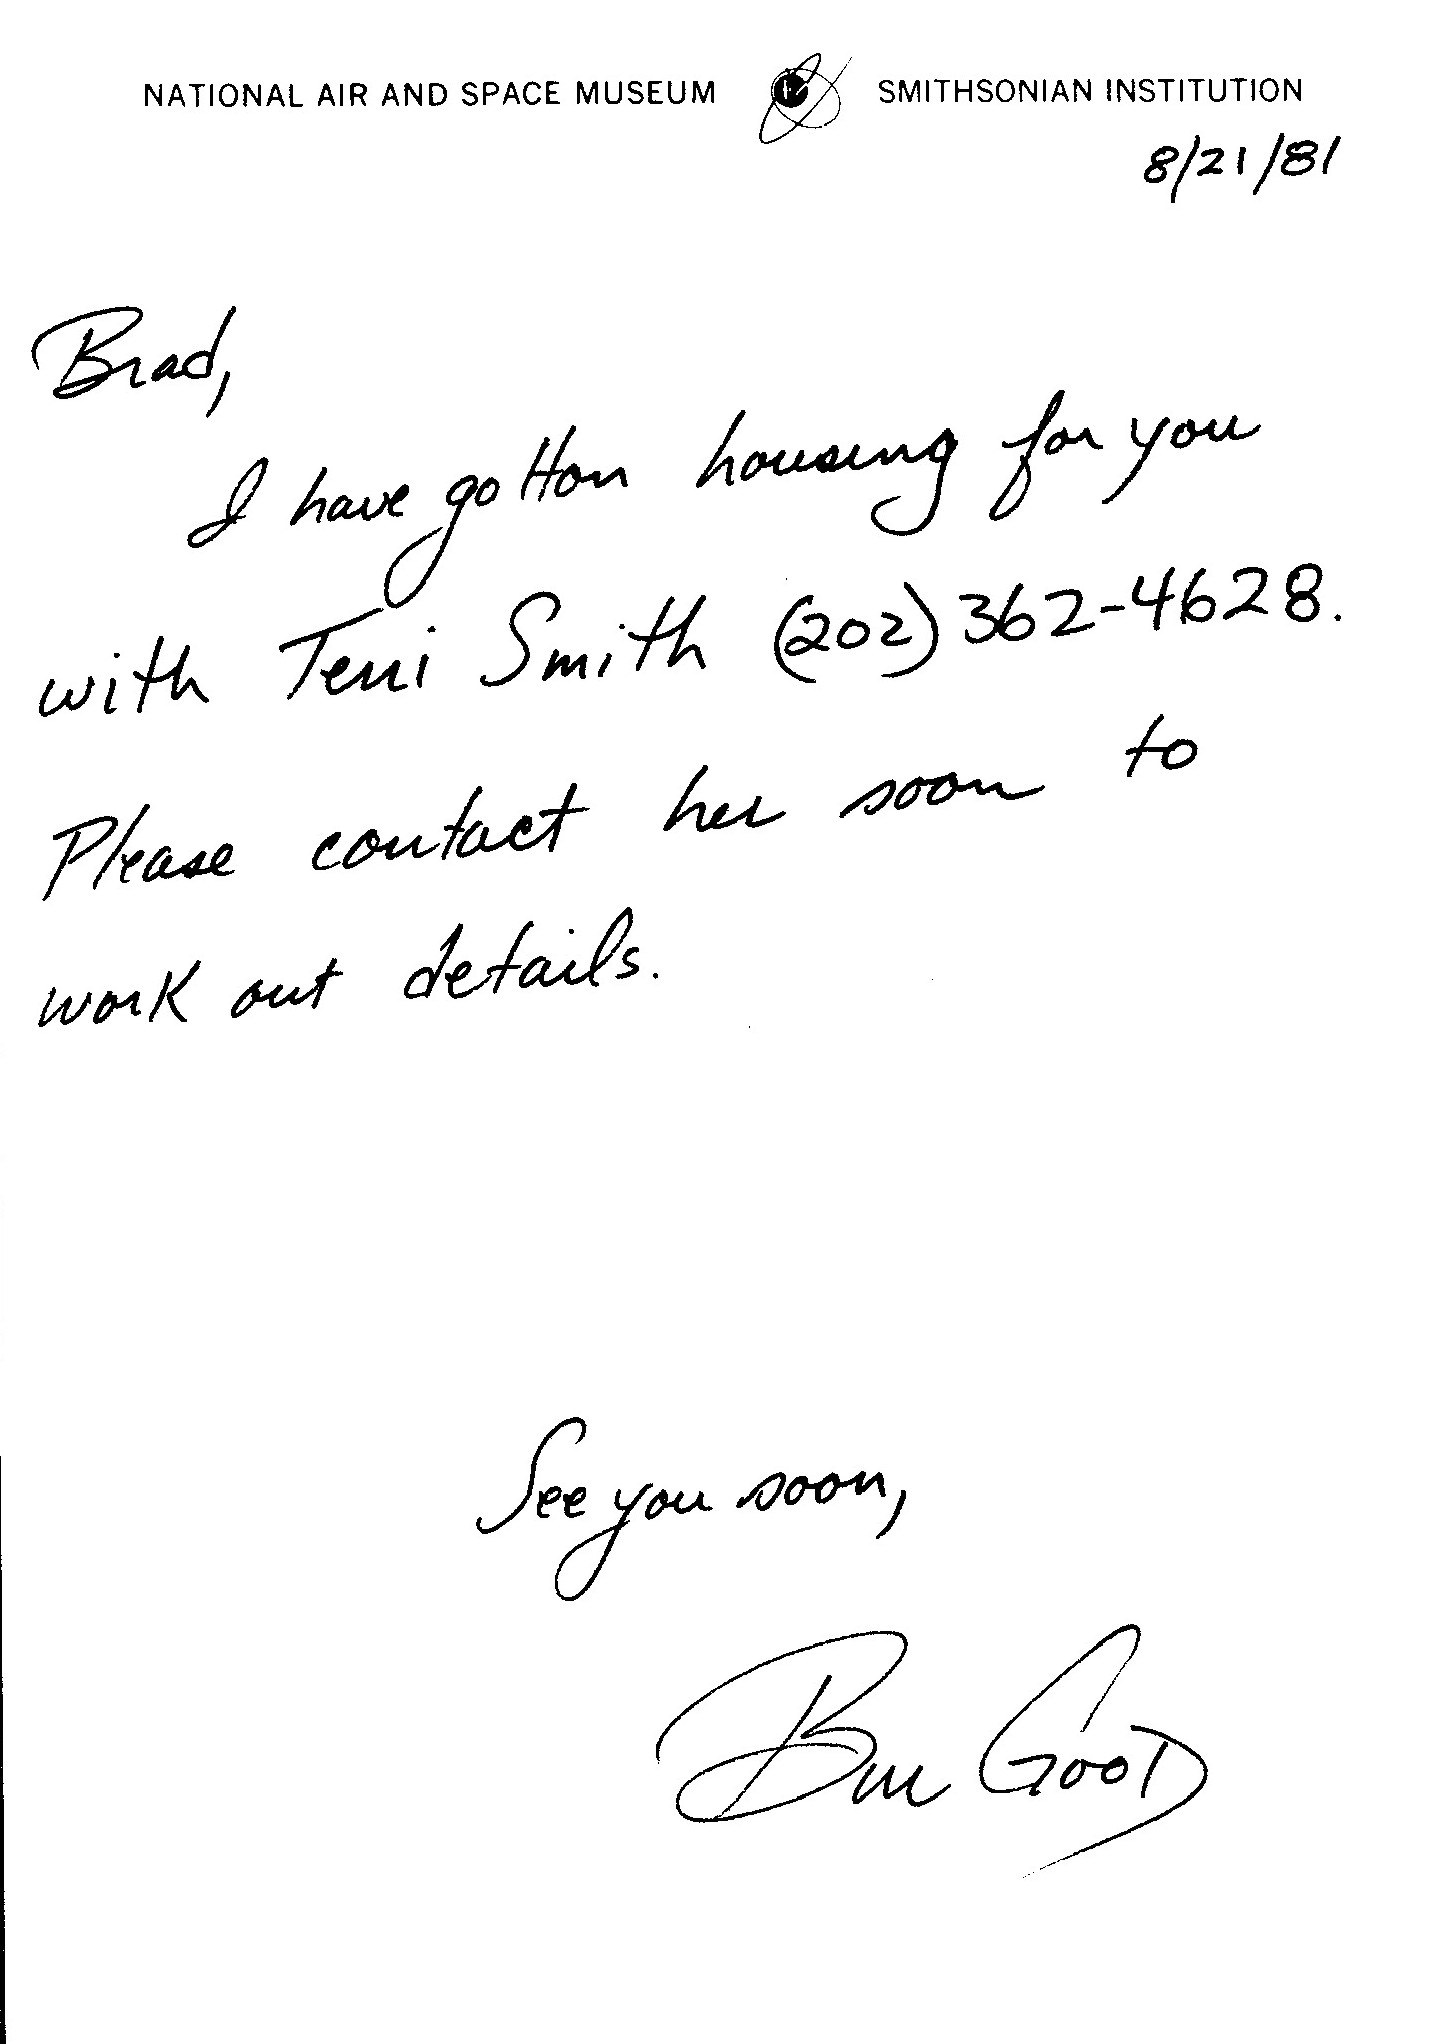 NATIONAL AIR AND SPACE MUSEUM SMITHSONIAN INSTITUTION
8/21/81
Brad,
I have gotton housing for you
with Terri Smith (202) 362-4628.
Please contact her soon to
work out details.
See you soon,
Good